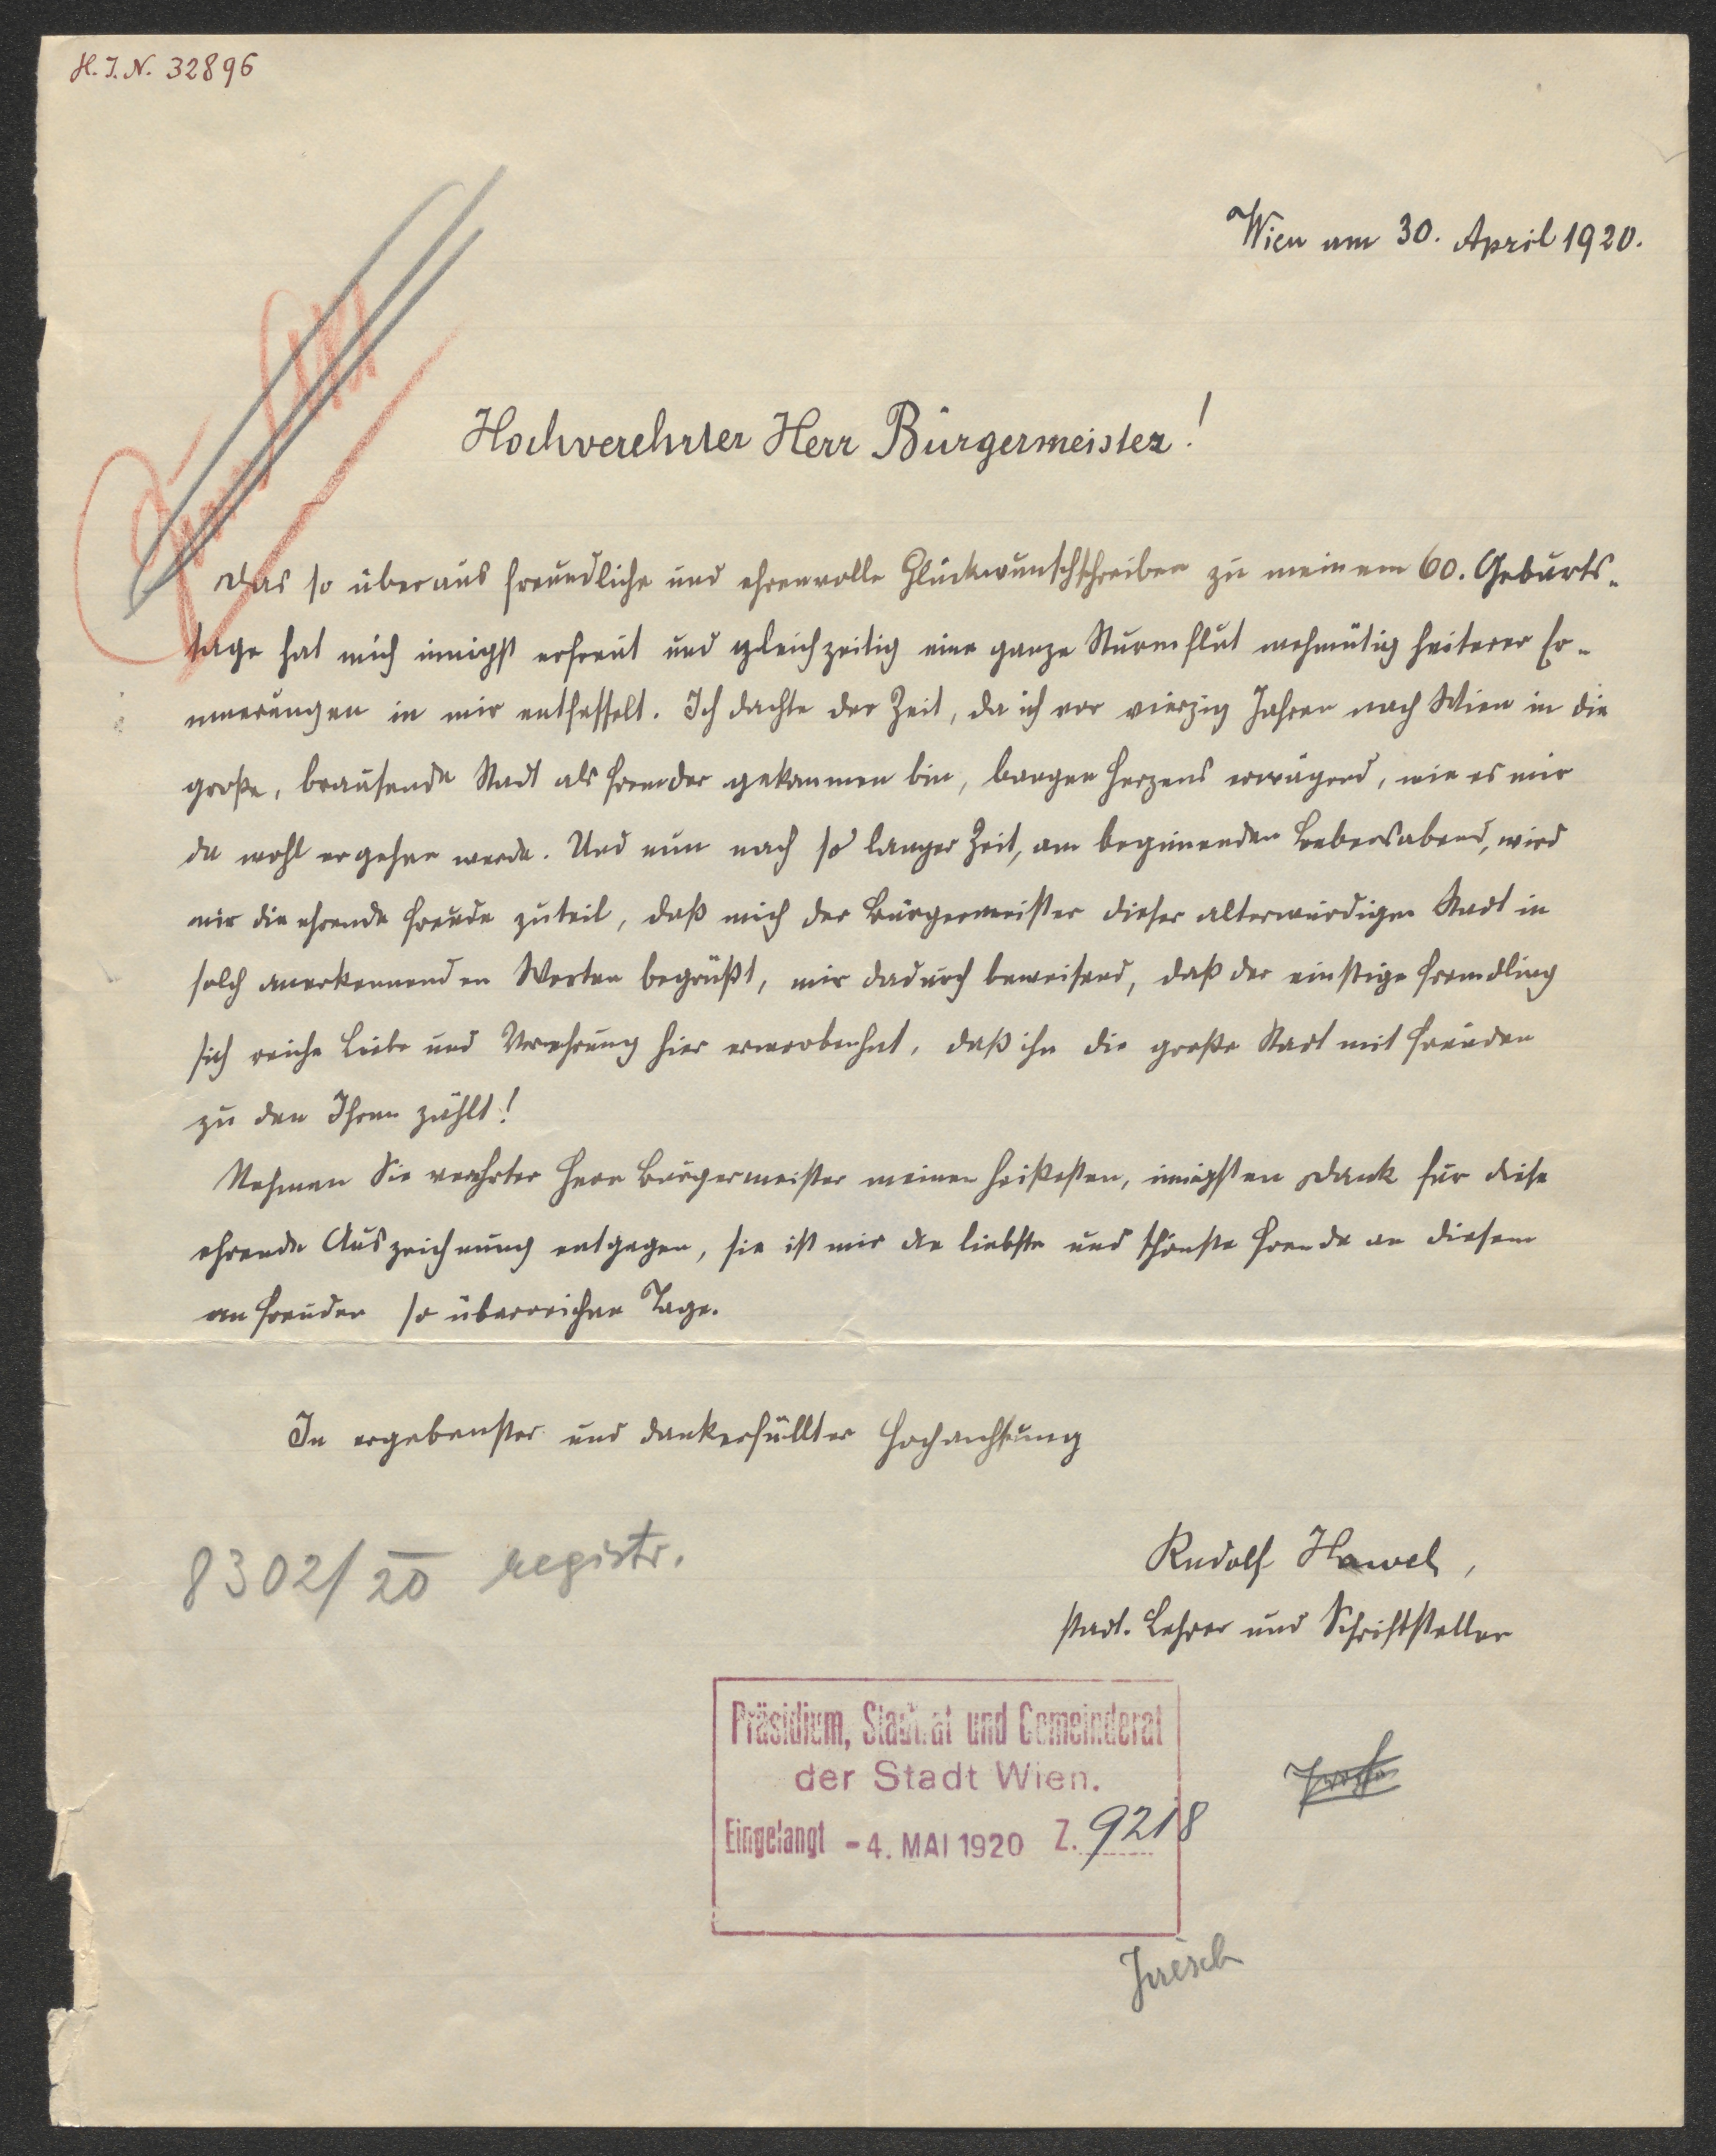 H. I. N. 32896
Wien am 30. April 1920.
Hochverehrter Herr Bürgermeister!
Das so überaus freundliche und ehrenvolle Glückwunschschreiben zu meinem 60. Geburts-
tage hat mich innigst erfreut und gleichzeitig eine ganze Sturmflut wehmütig heiterer Er-
innerungen in mir entfesselt. Ich dachte der Zeit, da ich vor vierzig Jahren nach Wien in die
große, brausende Stadt als Fremder gekommen bin, bangen Herzens erwägend, wie es mir
da wohl ergehen werde. Und nun nach so langer Zeit, am beginnenden Lebensabend, wird
mir die ehrende Freude zuteil, daß mich der Bürgermeister dieser altehrwürdigen Stadt in
solch anerkennenden Worten begrüßt, mir dadurch beweisend, daß der einstige Fremdling
sich reiche Liebe und Verehrung hier erworben hat, daß ihn die große Stadt mit Freuden
zu den Ihren zählt!
Nehmen Sie verehrter Herr Bürgermeister meinen heißesten, innigsten Dank für diese
ehrende Auszeichnung entgegen, sie ist mir die liebste und schönste Freude an diesem
an Freuden so überreichen Tage.
In ergebenster und dankerfüllter Hochachtung
8302/20 registr.
Rudolf Hawel,
städt. Lehrer und Schriftsteller
Präsidium, Stadtrat und Gemeinderat
der Stadt Wien.
Eingelangt - 4. MAI 1920 Z. 9218